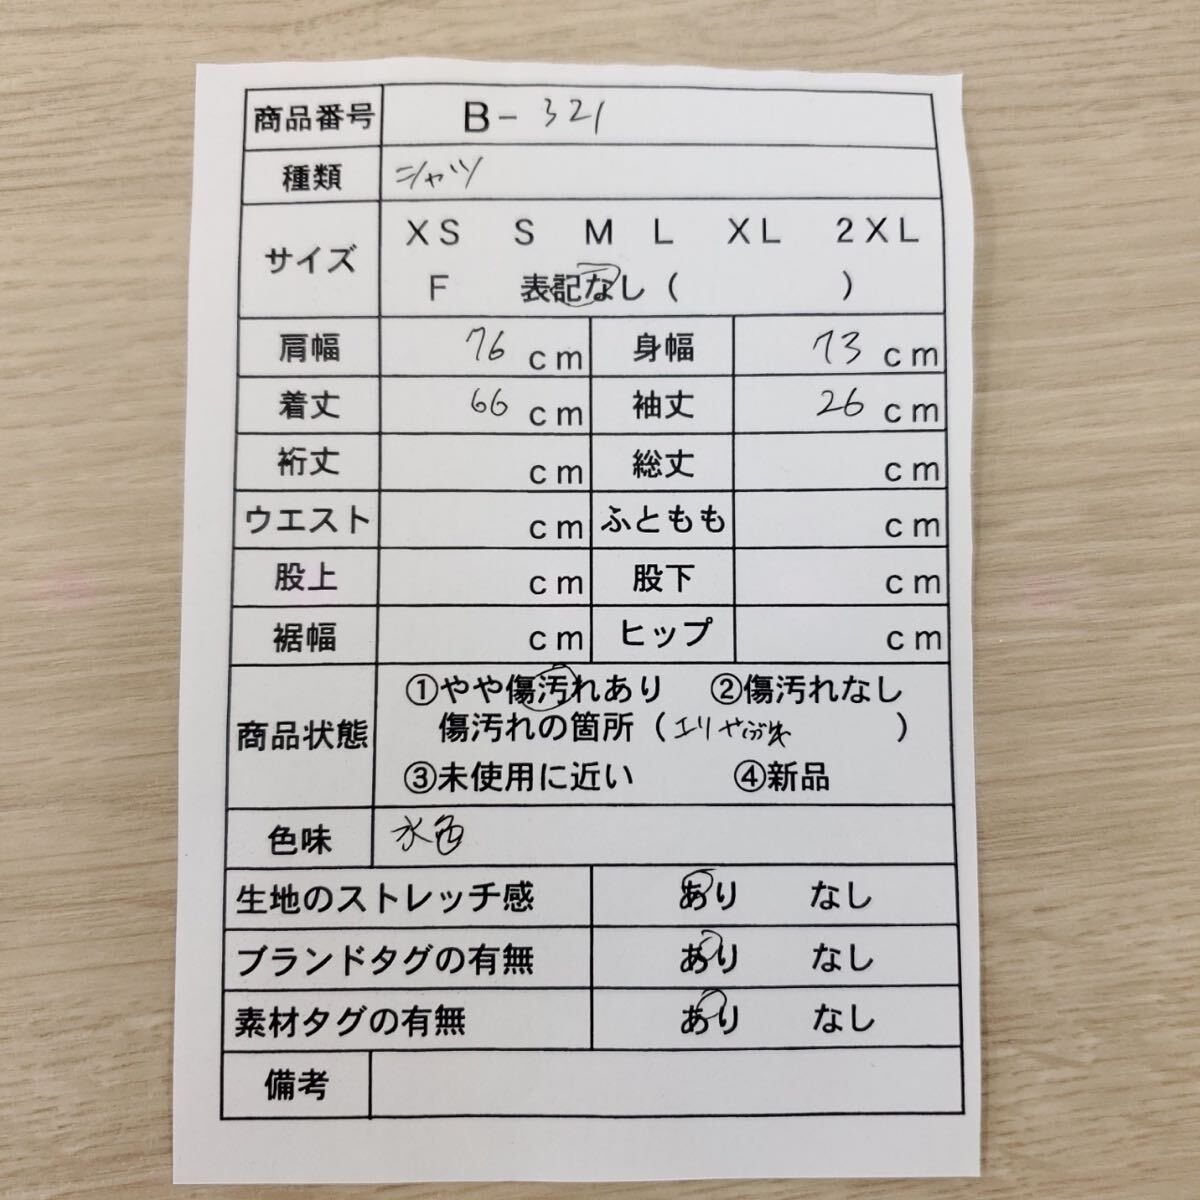 商品番号 B-321
種類 シャツ
サイズ XS S M L XL 2XL
F 表記なし( )
肩幅 76 cm 身幅 73 cm
着丈 66 cm 袖丈 26 cm
裄丈 cm 総丈 cm
ウエスト cm ふともも cm
股上 cm 股下 cm
裾幅 cm ヒップ cm
①やや傷汚れあり ②傷汚れなし
商品状態 傷汚れの箇所(エリやぶれ )
③未使用に近い ④新品
色味 水色
生地のストレッチ感 あり なし
ブランドタグの有無 あり なし
素材タグの有無 あり なし
備考